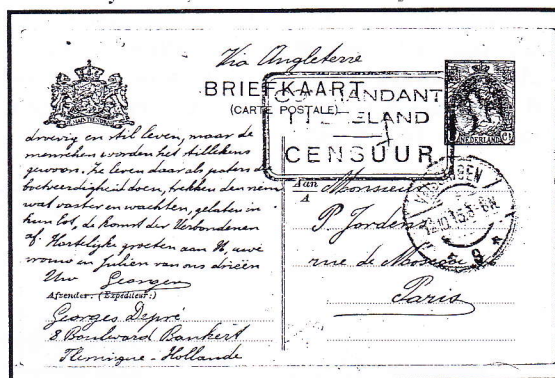 Via Angleterre
BRIEFKAART
(CARTE POSTALE)
COMMANDANT
ZEELAND
CENSUUR
NEDERLAND
droevig en stil leven, maar de
menschen worden het stillekens
gewoon. Ze leven daar als
doen, trekken den riem
wat vaster en wachten, gelaten in
hun lot, de komst der Verbondenen
af. Hartelijke groeten aan U, uwe
vrouw en Julien van ons drieën
Uw Georges
Afzender: (Expéditeur:)
Georges Depré
8 Boulevard Bankert
Flessingue - Hollande
Aan
A
Monsieur
P. Jordens
rue de Moscou
Paris
VLISSINGEN
12.10.15.